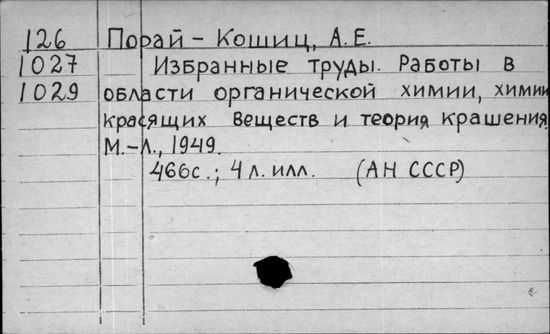 126 Порай-Кошиц, А.Е.
1027 Избранные труды. Работы в
1029 области органической химии, химии
красящих веществ и теория крашения.
М.-Л., 1949.
466с.; 4 л. илл. (АН СССР)